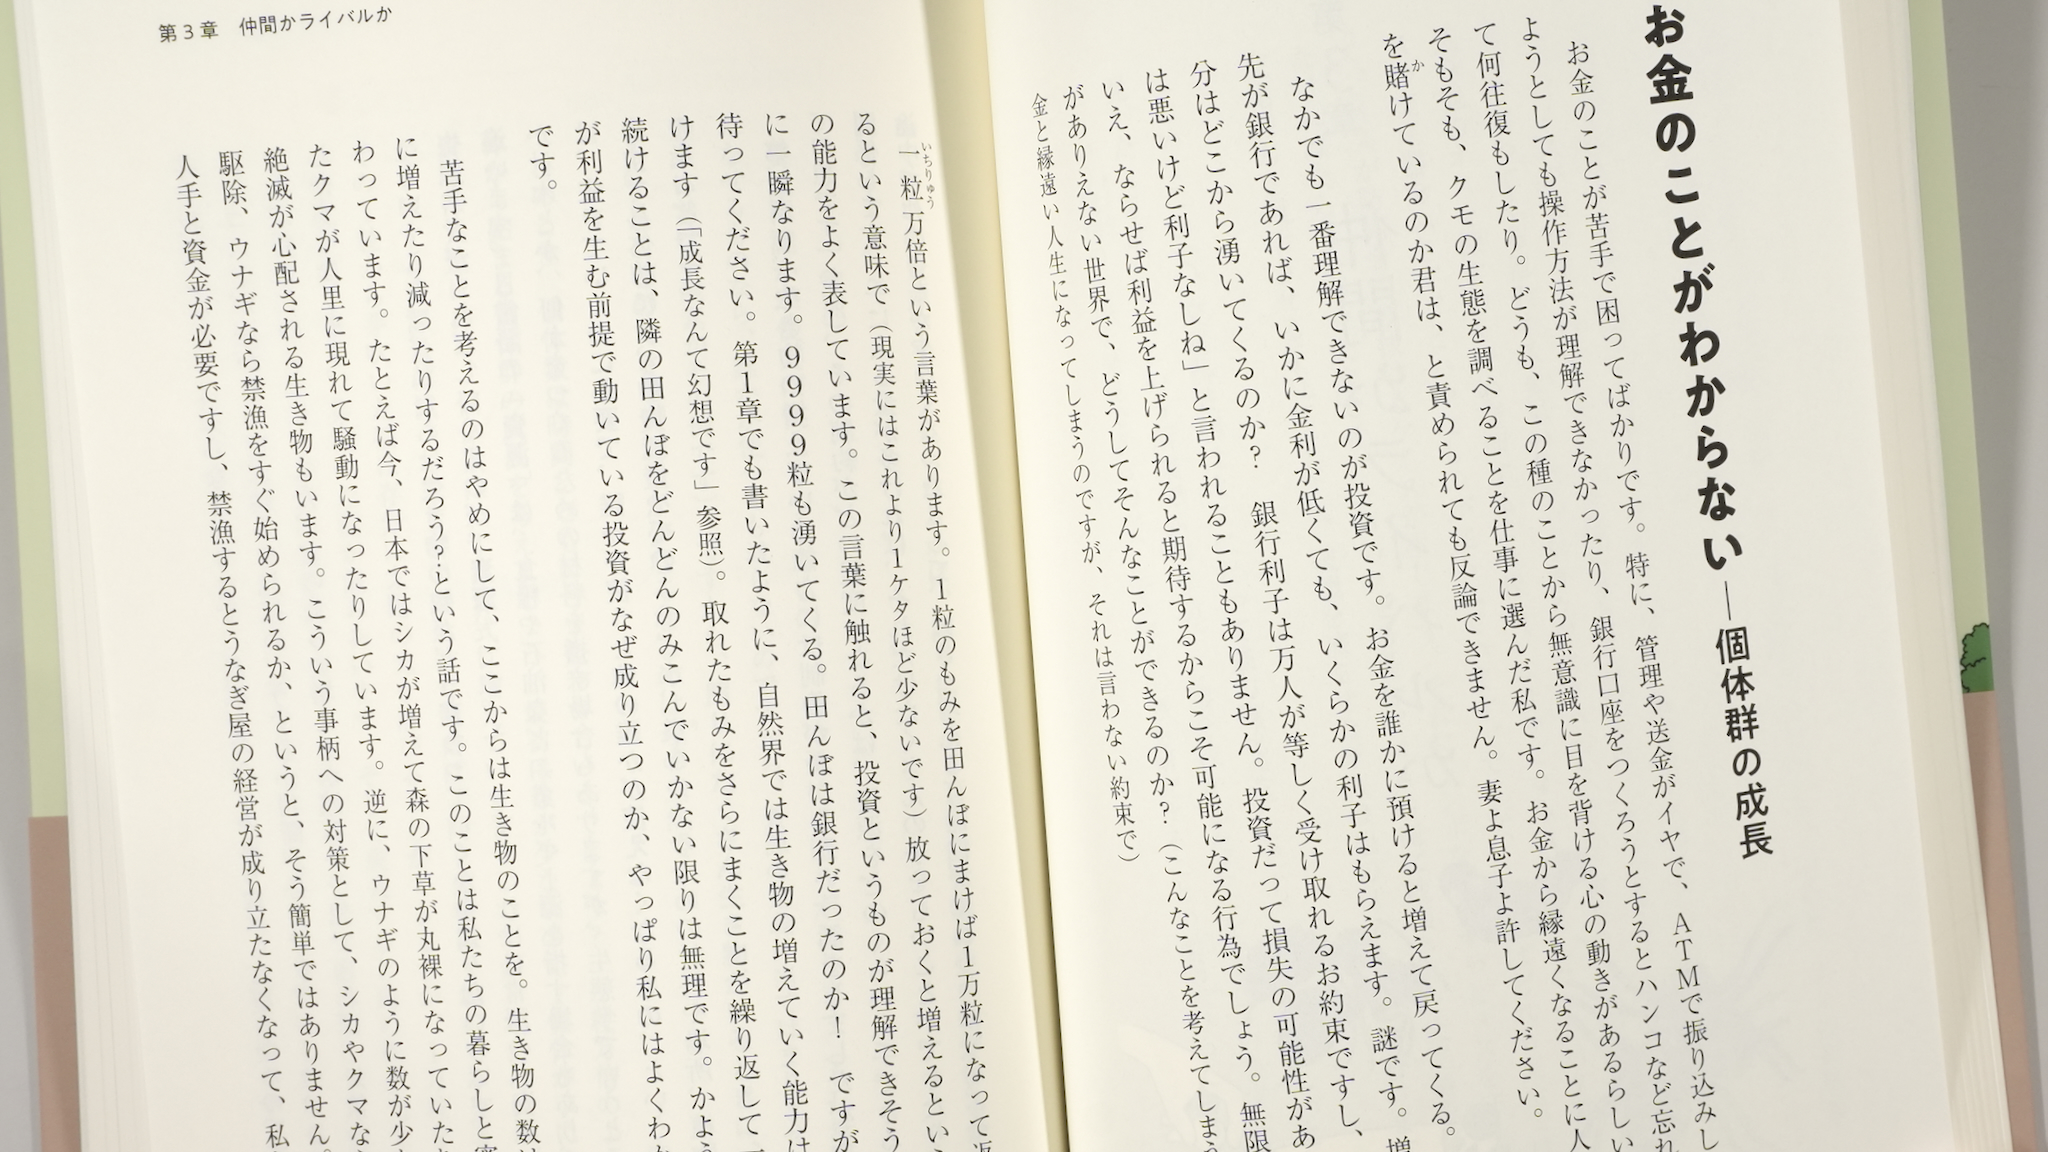 お金のことがわからない―個体群の成長
お金のことが苦手で困ってばかりです。特に、管理や送金がイヤで、ATMで振り込みし
ようとしても操作方法が理解できなかったり、銀行口座をつくろうとするとハンコなど忘れ
て何往復もしたり。どうも、この種のことから無意識に目を背ける心の動きがあるらしい
そもそも、クモの生態を調べることを仕事に選んだ私です。お金から縁遠くなることに人
を賭けているのか君は、と責められても反論できません。妻よ息子よ許してください。
なかでも一番理解できないのが投資です。お金を誰かに預けると増えて戻ってくる。
先が銀行であれば、いかに金利が低くても、いくらかの利子はもらえます。謎です。増
分はどこから湧いてくるのか? 銀行利子は万人が等しく受け取れるお約束ですし、
は悪いけど利子なしね」と言われることもありません。投資だって損失の可能性があ
いえ、ならせば利益を上げられると期待するからこそ可能になる行為でしょう。無限
がありえない世界で、どうしてそんなことができるのか?(こんなことを考えてしまう
金と縁遠い人生になってしまうのですが、それは言わない約束で)
第3章 仲間かライバルか
一粒万倍という言葉があります。1粒のもみを田んぼにまけば1万粒になって返
るという意味で(現実にはこれより1ケタほど少ないです)放っておくと増えるとい
の能力をよく表しています。この言葉に触れると、投資というものが理解できそう
に一瞬なります。9999粒も湧いてくる。田んぼは銀行だったのか! ですが
待ってください。第1章でも書いたように、自然界では生き物の増えていく能力は
けます(「成長なんて幻想です」参照)。取れたもみをさらにまくことを繰り返して
続けることは、隣の田んぼをどんどんのみこんでいかない限りは無理です。かよう
が利益を生む前提で動いている投資がなぜ成り立つのか、やっぱり私にはよくわか
です。
苦手なことを考えるのはやめにして、ここからは生き物のことを。生き物の数は
に増えたり減ったりするだろう?という話です。このことは私たちの暮らしと密
わっています。たとえば今、日本ではシカが増えて森の下草が丸裸になっていたり
たクマが人里に現れて騒動になったりしています。逆に、ウナギのように数が少
絶滅が心配される生き物もいます。こういう事柄への対策として、シカやクマな
駆除、ウナギなら禁漁をすぐ始められるか、というと、そう簡単ではありません。
人手と資金が必要ですし、禁漁するとうなぎ屋の経営が成り立たなくなって、私